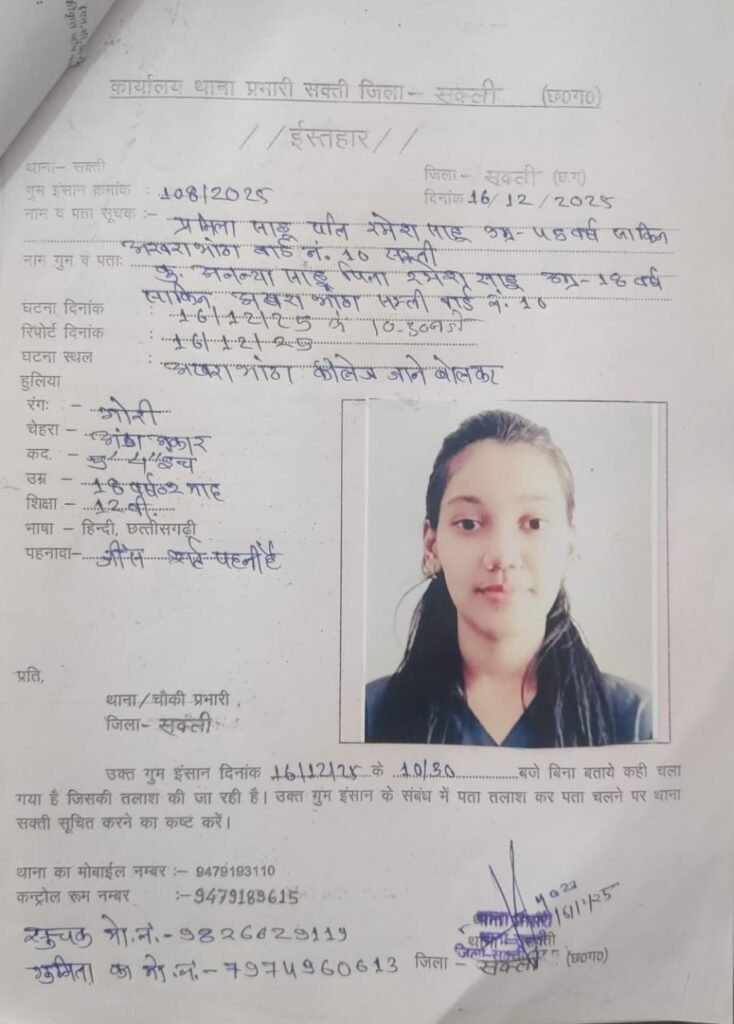 कार्यालय थाना प्रभारी सक्ती जिला- सक्ती (छ०ग०)
//ईस्तहार//
थाना- सक्ती
जिला- सक्ती (छ.ग)
गुम इंसान क्रमांक : 108/2025
दिनांक 16/12/2025
नाम व पता सूचक :- प्रमिला साहू पति रमेश साहू उम्र- 45 वर्ष साकिन
अखराभांठा वार्ड नं. 10 सक्ती
नाम गुम व पताः कु अनन्या साहू पिता रमेश साहू उम्र- 18 वर्ष
साकिन अखराभांठा सक्ती वार्ड नं. 10
घटना दिनांक : 16/12/25 के 10-30 बजे
रिपोर्ट दिनांक : 16/12/25
घटना स्थल : अखराभांठा कॉलेज जाने बोलकर
हुलिया
रंगः - गोरी
चेहरा - अंडा अकार
कद. - 4 इंच
उम्र - 18 वर्ष 02 माह
शिक्षा - 12 वी.
भाषा - हिन्दी, छत्तीसगढ़ी
पहनावा- जींस शर्ट पहनी है
प्रति,
थाना/चौकी प्रभारी,
जिला- सक्ती
उक्त गुम इंसान दिनांक 16/12/25 के 10/30 बजे बिना बताये कही चला
गया है जिसकी तलाश की जा रही है। उक्त गुम इंसान के संबंध में पता तलाश कर पता चलने पर थाना
सक्ती सूचित करने का कष्ट करें।
थाना का मोबाईल नम्बर :- 9479193110
कन्ट्रोल रूम नम्बर :-9479189615
सूचक मो.नं.- 9826629119
गुमिता का मो.नं.- 7974960613
थाना प्रभारी
जिला - सक्ती (छ०ग०)